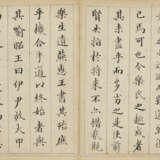 已焉可也今樂氏之趣或者
其未盡乎而多劣之是使前
賢失指於將來不亦惜哉觀
樂生遺燕惠王書其殆庶
乎機合乎道以終始者與
其喻昭王曰伊尹放大甲